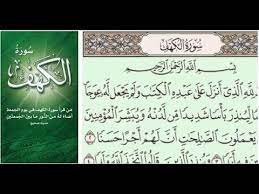 سورة
الكهف
من قرأ سورة الكهف في يوم الجمعة
أضاء له من النور ما بين الجمعتين
سُورَةُ الكَهْفِ
بِسْمِ اللَّهِ الرَّحْمَٰنِ الرَّحِيمِ
لِلَّهِ الَّذِي أَنزَلَ عَلَىٰ عَبْدِهِ الْكِتَٰبَ وَلَمْ يَجْعَل لَّهُ عِوَجًا
لِّيُنذِرَ بَأْسًا شَدِيدًا مِّن لَّدُنْهُ وَيُبَشِّرَ الْمُؤْمِنِينَ
يَعْمَلُونَ الصَّٰلِحَٰتِ أَنَّ لَهُمْ أَجْرًا حَسَنًا